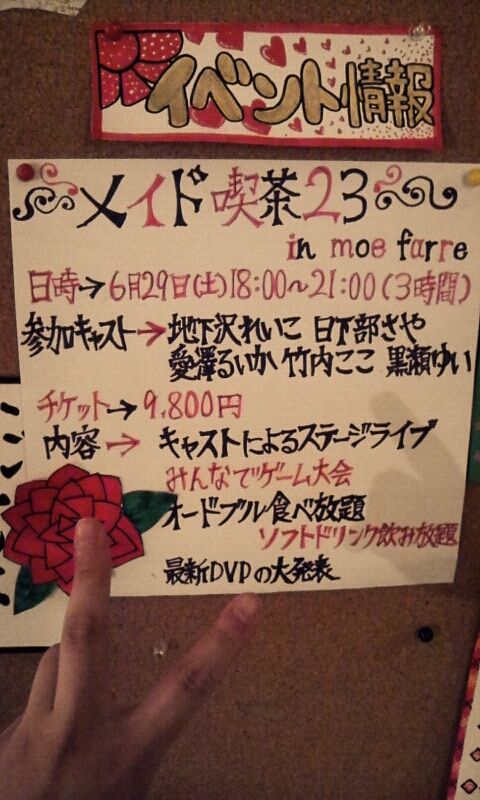 イベント情報
メイド喫茶23
in moe farre
日時→6月29日(土)18:00〜21:00(3時間)
参加キャスト→地下沢れいこ 日下部さや
愛澤るいか 竹内ここ 黒瀬ゆい
チケット→9,800円
内容→キャストによるステージライブ
みんなでゲーム大会
オードブル食べ放題
ソフトドリンク飲み放題
最新DVDの大発表